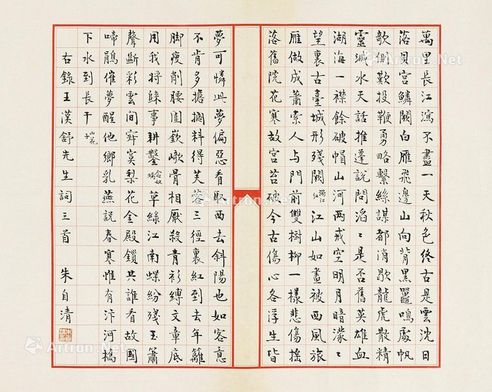 萬里長江瀉不盡一天秋色終古是雲沈日
落貝宮鱗闕白雁飛邊山向背黑鼉鳴處帆
欹側歎投鞭勇略繫絲謀都消歇龍虎散精
靈水天話推遷說問滔〻是否舊英雄血
湖海一襟餘破帽山河兩戒空明月昔濛〻
望裏古臺城形殘闕江山如畫被西風旅
雁做成蕭索人與門前雙樹柳一樣悲傷搖
落舊院花寒故宮苔破今古傷心各浮生皆
夢可憐此夢偏惡看取西去斜陽也如客意
不肯多擔擱料得芙蓉三徑裏紅到去年籬
腳瘦削腰圍嶔骨相厭殺青衫縛文章底
用我將餘事耕鑿草綠江南蝶紛殘玉簫
聲斷彩雲間梨花金殿鎖共誰看故國
啼鵑催夢醒他鄉乳燕說春寒惟有汴河橋
下水到長干
右錄王漢舒先生詞三首 朱自清
Artron.Net